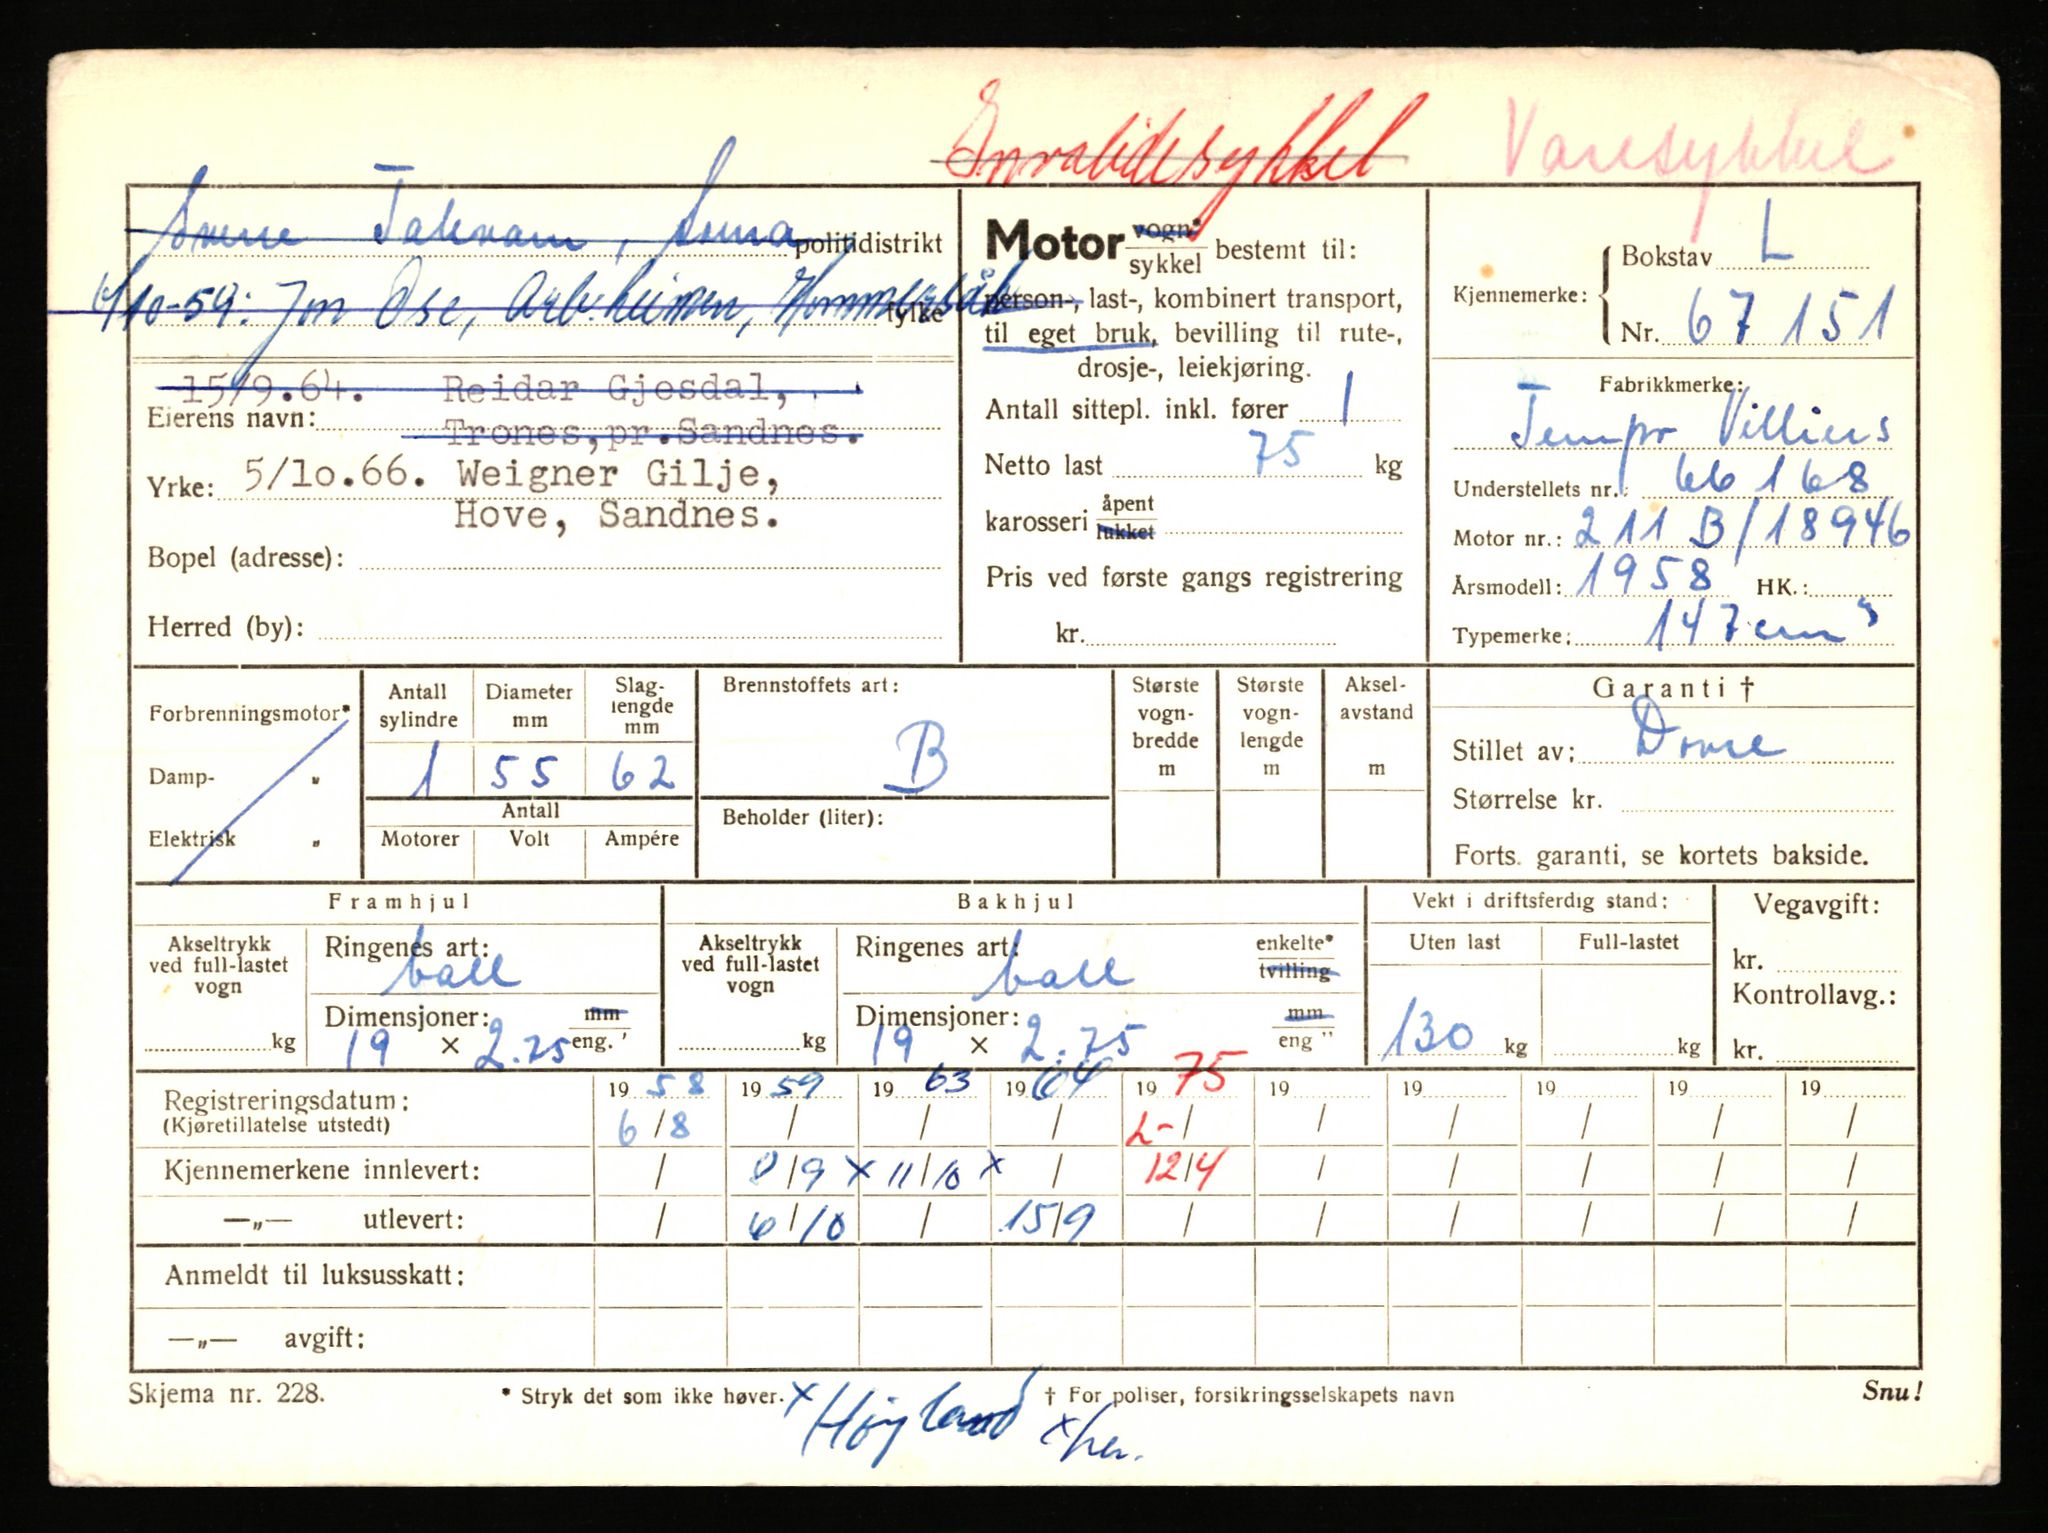 Invalidesykkel Varesykkel
politidistrikt
6/10-59: Jon Ose, Arb.heimen, Hommersåk
fylke
15/9.64. Reidar Gjesdal,
Eierens navn: Trones, pr. Sandnes.
Yrke: 5/10.66. Weigner Gilje,
Hove, Sandnes.
Bopel (adresse):
Herred (by):
Motor vogn*
sykkel bestemt til:
person-, last-, kombinert transport,
til eget bruk, bevilling til rute-,
drosje-, leiekjøring.
Antall sittepl. inkl. fører 1
Netto last 75 kg
karosseri åpent
lukket
Pris ved første gangs registrering
kr.
Kjennemerke: Bokstav L
Nr. 67151
Fabrikkmerke:
Tempo Villiers
Understellets nr.: 66168
Motor nr.: 211 B/18946
Årsmodell: 1958 HK.:
Typemerke: 147 cm³
Forbrenningsmotor*
Damp- „
Elektrisk „
Antall sylindre 1
Diameter mm 55
Slag-lengde mm 62
Antall
Motorer Volt Ampére
Brennstoffets art:
B
Beholder (liter):
Største vogn-bredde m
Største vogn-lengde m
Aksel-avstand m
Garanti †
Stillet av:
Størrelse kr.
Forts. garanti, se kortets bakside.
Framhjul
Akseltrykk ved full-lastet vogn
kg
Ringenes art:
ball
Dimensjoner: mm
19 × 2.75 eng. '
Bakhjul
Akseltrykk ved full-lastet vogn
kg
Ringenes art: enkelte*
ball tvilling
Dimensjoner: mm
19 × 2.75 eng "
Vekt i driftsferdig stand:
Uten last Full-lastet
130 kg kg
Vegavgift:
kr.
Kontrollavg.:
kr.
Registreringsdatum: 1958 1959 1963 1964 1975 19 19 19 19 19
(Kjøretillatelse utstedt) 6/8 / / / L-/ / / / / /
Kjennemerkene innlevert: / /9 x 11/10 x / 12/4 / / / / /
—„— utlevert: / 6/10 / 15/9 / / / / / /
Anmeldt til luksusskatt:
—„— avgift:
Skjema nr. 228. * Stryk det som ikke høver. x Høyland † For poliser, forsikringsselskapets navn Snu!
x her.